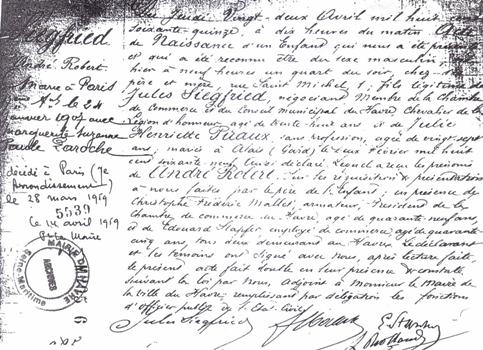 Siegfried
André Robert
Marié à Paris
le 24
janvier 1907 avec
Marguerite Suzanne
Laroche
décédé à Paris (7e
Arrondissement)
le 28 mars 1959
5539
le 14 avril 1959
MAIRIE DU HAVRE
Seine-Maritime
ARCHIVES
Du Jeudi Vingt-deux Avril mil huit cent
soixante quinze, à dix heures du matin Acte
de Naissance d'un Enfant qui nous a été présenté
et qui a été reconnu être du sexe masculin, né
hier à neuf heures un quart du soir, chez ses
père et mère, rue Saint Michel, 1; fils légitime de
Jules Siegfried, négociant, Membre de la Chambre
de Commerce et du Conseil municipal du Havre, Chevalier de la
Légion d'honneur, âgé de trente-huit ans et de Julie
Henriette Puaux, sans profession, âgée de vingt-sept
ans; mariés à Alais (Gard) le deux Février mil huit
cent soixante-neuf, ainsi déclaré. Lequel a reçu les prénoms
de André Robert. Sur les réquisition & présentation
à nous faites par le père de l'Enfant; en présence de
Christophe Frédéric Mallet, armateur, Président de la
Chambre de commerce du Havre, âgé de quarante-neuf ans,
et de Edouard Stapfer, employé de commerce, âgé de quarante-
cinq ans, tous deux demeurant au Havre. Le déclarant
et les témoins ont signé avec Nous, après lecture faite,
le présent acte fait double en leur présence & constaté
suivant la loi par Nous, adjoint à Monsieur le Maire de
la ville du Havre, remplissant par délégation les fonctions
d'officier public de l'Etat Civil
Jules Siegfried